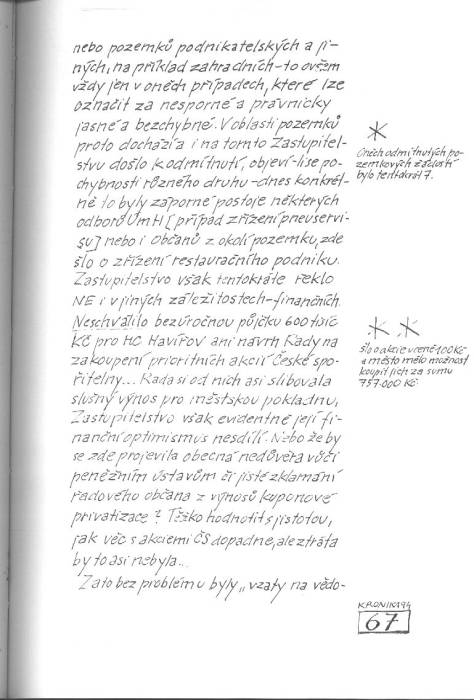 nebo pozemků podnikatelských a ji-
ných, na příklad zahradních - to ovšem
vždy jen v oněch případech, které lze
označit za nesporné a právnicky
jasné a bezchybné. V oblasti pozemků
proto dochází a i na tomto Zastupitel-
stvu došlo k odmítnutí, objeví-li se po-
chybnosti různého druhu - dnes konkrét-
ně to byly záporné postoje některých
odborů ÚmH [případ zřízení pneuservi-
su] nebo i občanů z okolí pozemku, kde
šlo o zřízení restauračního podniku.
Zastupitelstvo však tentokráte řeklo
NE i v jiných záležitostech - finančních.
Neschválilo bezúročnou půjčku 600 tisíc
Kč pro HC Havířov ani návrh Rady na
zakoupení prioritních akcií České spo-
řitelny... Rada si od nich asi slibovala
slušný výnos pro městskou pokladnu,
Zastupitelstvo však evidentně její fi-
nanční optimismus nesdílí. Nebo že by
se zde projevila obecná nedůvěra vůči
peněžním ústavům či jisté zklamání
řadového občana z výnosů kuponové
privatizace? Těžko hodnotit s jistotou,
jak věc s akciemi ČS dopadne, ale ztráta
by to asi nebyla...
Zato bez problému byly „vzaty na vědo-
*
Oněch odmítnutých po-
zemkových žádostí
bylo tentokrát 7.
* *
šlo o akcie v ceně 100 Kč
a město mělo možnost
koupit jich za sumu
757.000 Kč.
KRONIKA 94
67